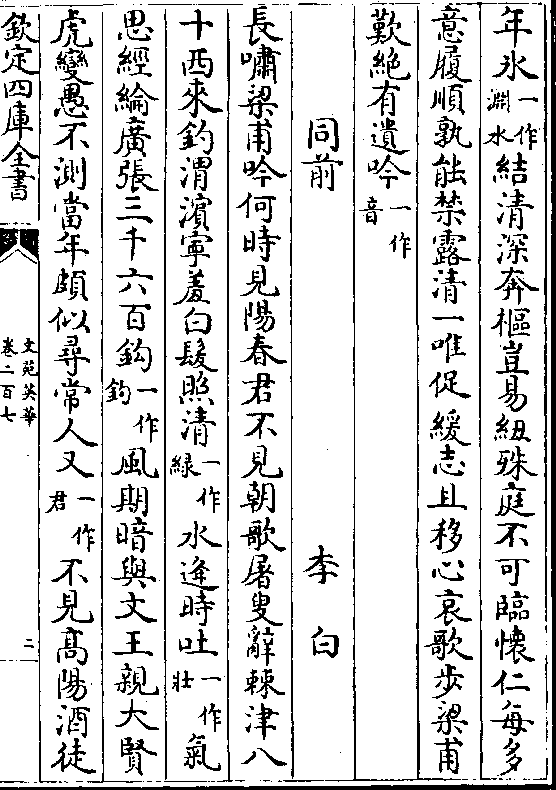 年氷一作淵水結清深奔樞豈易紐殊庭不可臨懐仁每多
意履順孰能禁露清一唯促緩志且移心哀歌步梁甫
歎絶有遺吟一作音
同前 李白
長嘯梁甫吟何時見陽春君不見朝歌屠叟辭棘津八
十西來釣渭濱寧羞白髮照清一作緑水逢時吐一作壯氣
思經綸廣張三千六百鈎一作釣風期暗與文王親大賢
虎變愚不測當年頗似尋常人又一作君不見髙陽酒徒
欽定四庫全書
文苑英華
卷二百七
二